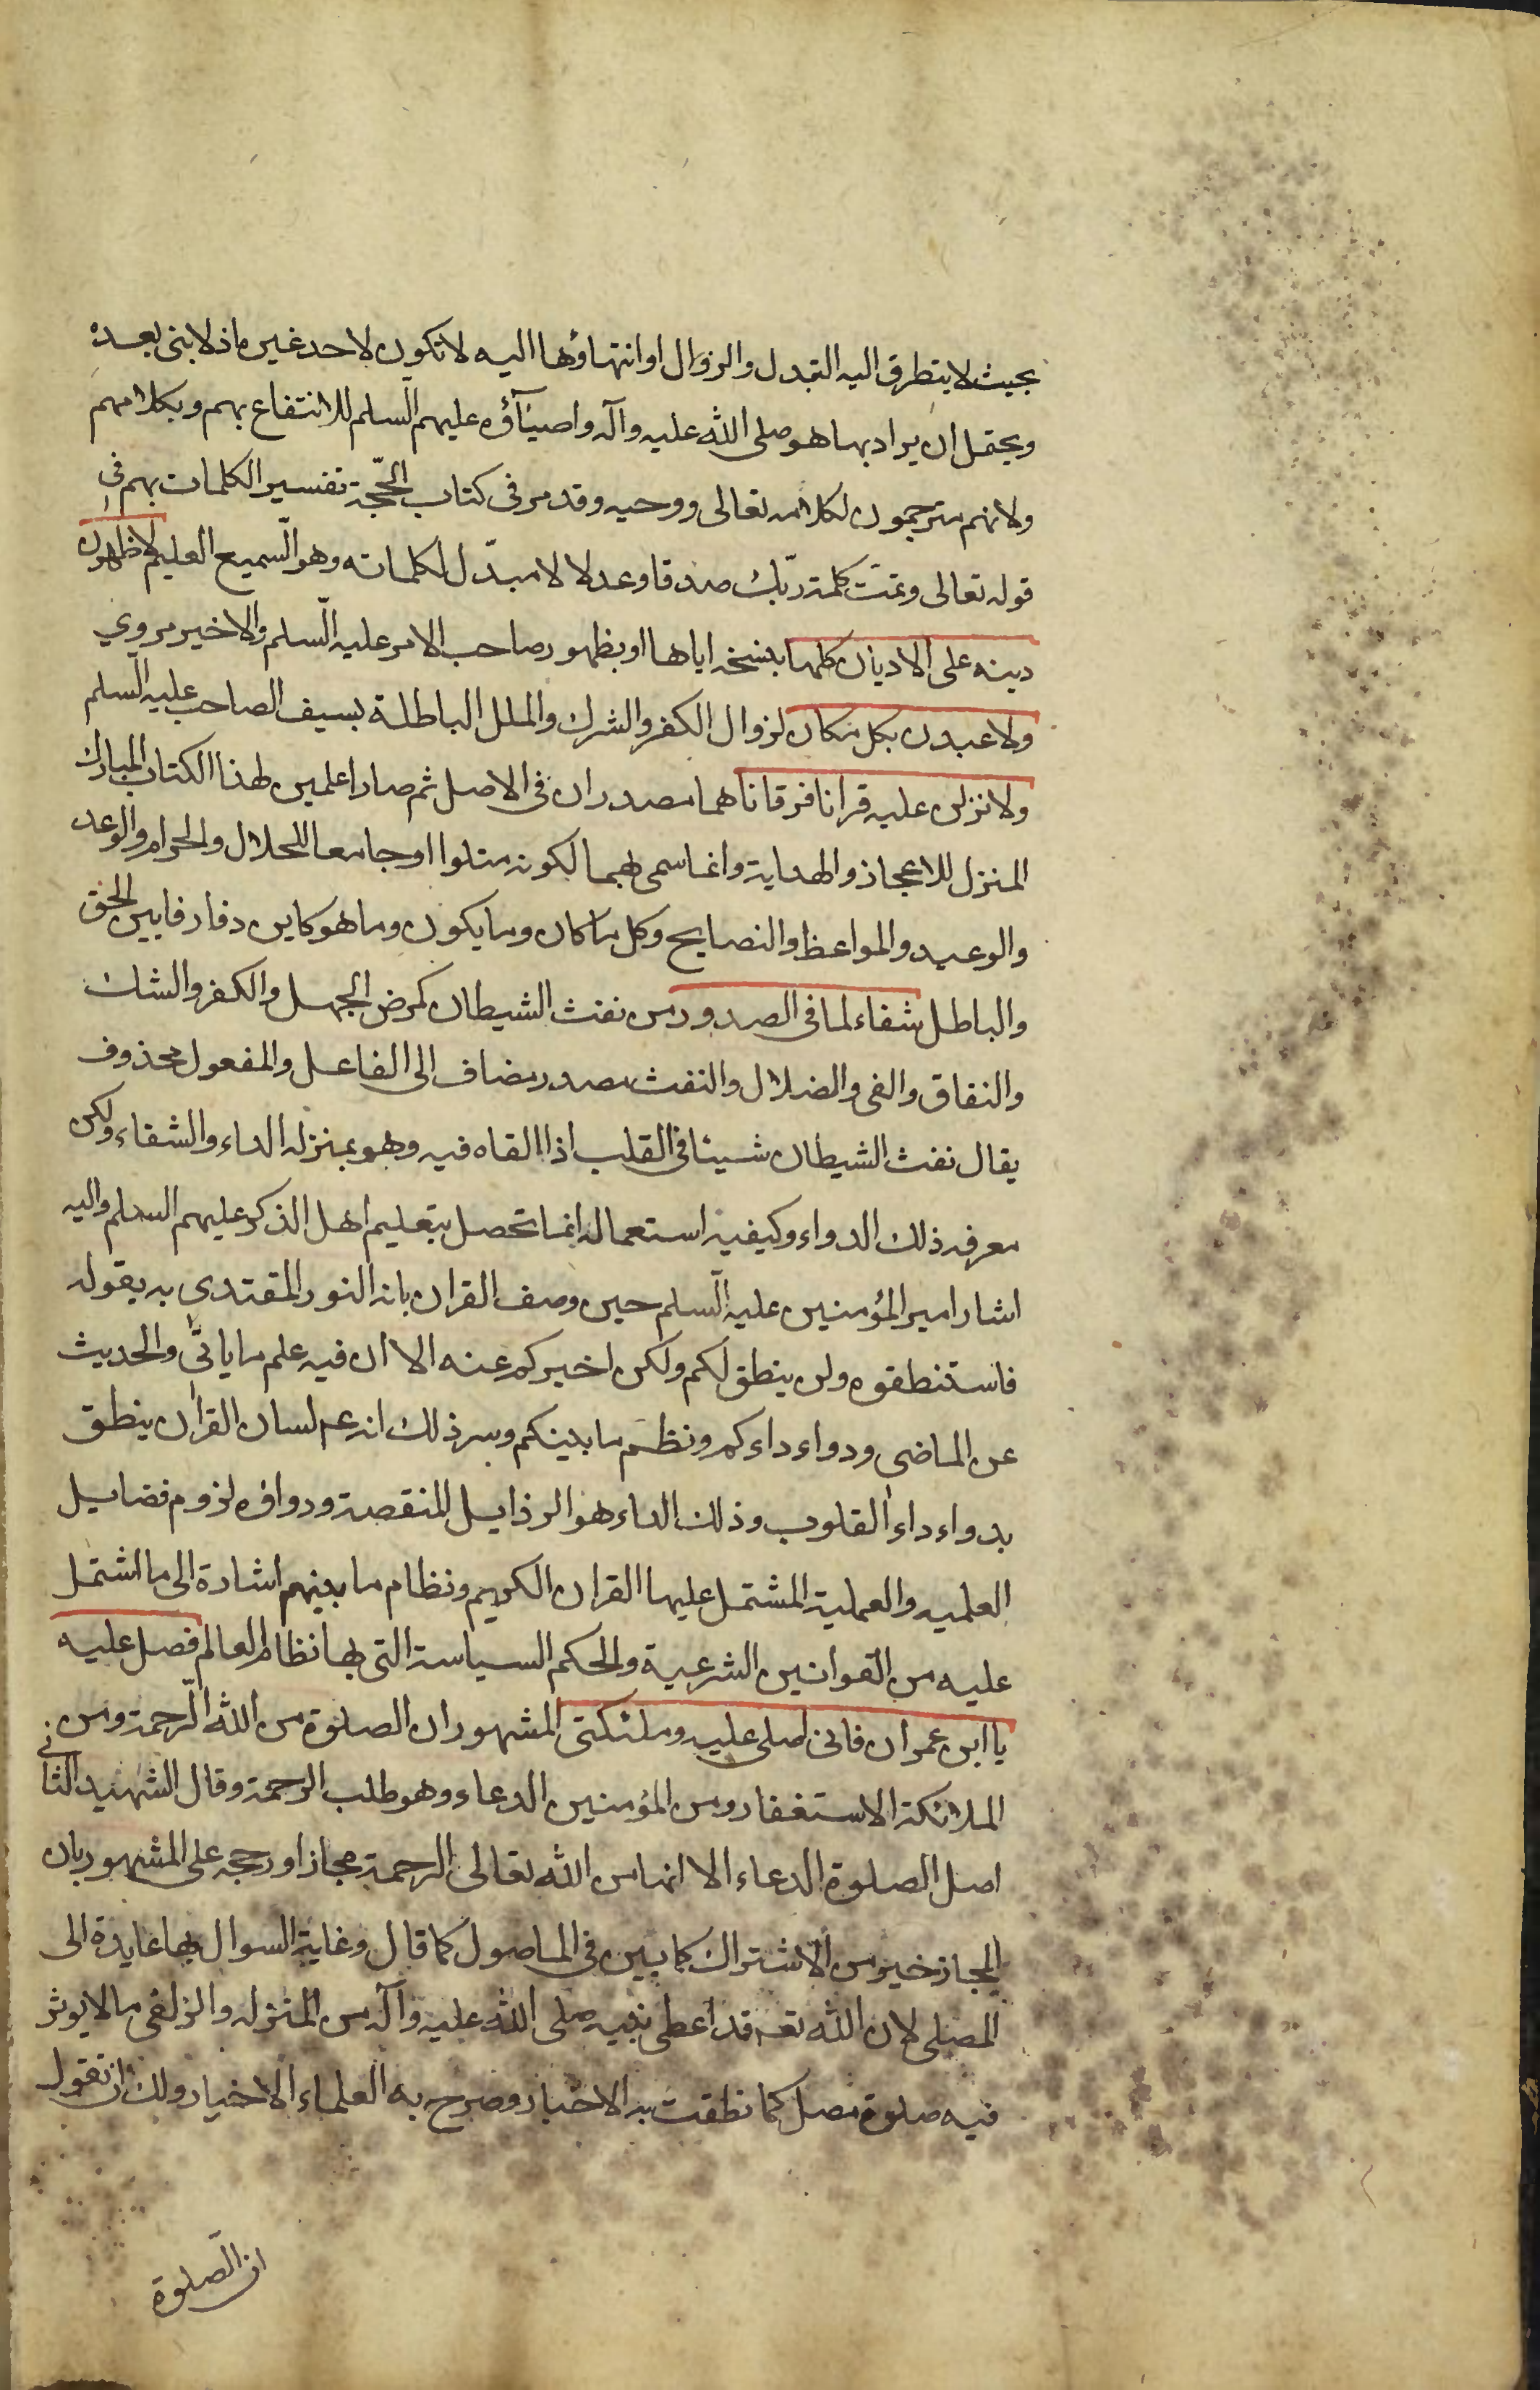 بحيث لا يتطرق اليه التبدل والزوال او انتهاؤها اليه لا تكون لاحد غيره اذ لا نبى بعده
ويحتمل ان يراد بها هو صلى الله عليه وآله واصيآؤه عليهم السلم للانتفاع بهم وبكلامهم
ولانهم مترجمون لكلامه تعالى ووحيه وقد مر فى كتاب الحجّة تفسير الكلمات بهم فى
قوله تعالى وتمت كلمة ربّك صدقا وعدلا لا مبدّل لكلماته وهو السّميع العليم لاظهرن
دينه على الاديان كلها بنسخه اياها او بظهور صاحب الامر عليه السّلم والاخير مروي
ولاعبدن بكل مكان لزوال الكفر والشرك والملل الباطلة بسيف الصاحب عليه السلم
ولانزلن عليه قرانا فرقانا هما مصدران فى الاصل ثم صارا علمين لهذا الكتاب المبارك
المنزل للاعجاز والهداية وانما سمى بهما لكونه متلوا او جامعا للحلال والحرام والوعد
والوعيد والمواعظ والنصايح وكل ما كان وما يكون وما هو كاين وفارقا بين الحق
والباطل شفاء لما فى الصدور من نفث الشيطان كمرض الجهل والكفر والشك
والنفاق والغى والضلال والنفث مصدر مضاف الى الفاعل والمفعول محذوف
يقال نفث الشيطان شيئا فى القلب اذا القاه فيه وهو بمنزله الداء والشفاء ولكن
معرفه ذلك الدواء وكيفية استعماله انما تحصل بتعليم اهل الذكر عليهم السلم واليه
اشار امير المؤمنين عليه السّلم حين وصف القران بانه النور المقتدى به بقوله
فاستنطقوه ولن ينطق لكم ولكن اخبركم عنه الا ان فيه علم ما ياتى والحديث
عن الماضى ودواء داءكم ونظم ما بينكم وسر ذلك انه عم لسان القران ينطق
بدواء داء القلوب وذلك الداء هو الرذايل المنقصة ودواؤه لزوم فضايل
العلميه والعملية المشتمل عليها القران الكريم ونظام ما بينهم اشارة الى ما اشتمل
عليه من القوانين الشرعية والحكم السياسة التى بها نظام العالم فصل عليه
يا ابن عمران فانى اصلى عليه وملئكتى المشهور ان الصلوة من الله الرّحمة ومن
الملائكة الاستغفار ومن المؤمنين الدعاء وهو طلب الرحمة وقال الشهيد الثانى
اصل الصلوة الدعاء الا انها من الله تعالى الرحمة مجازا ورجحه على المشهور بان
المجاز خير من الاشتراك كما بين فى الماصول كما قال وغاية السوال بها عايدة الى
المصلى لان الله تعه قد اعطى نبيه صلى الله عليه وآله من المنزله والزلفى ما لا يوثر
فيه صلوة مصل كما نطقت به الاخبار وصرح به العلماء الاخيار ولك ان تقول
ان الصلوة